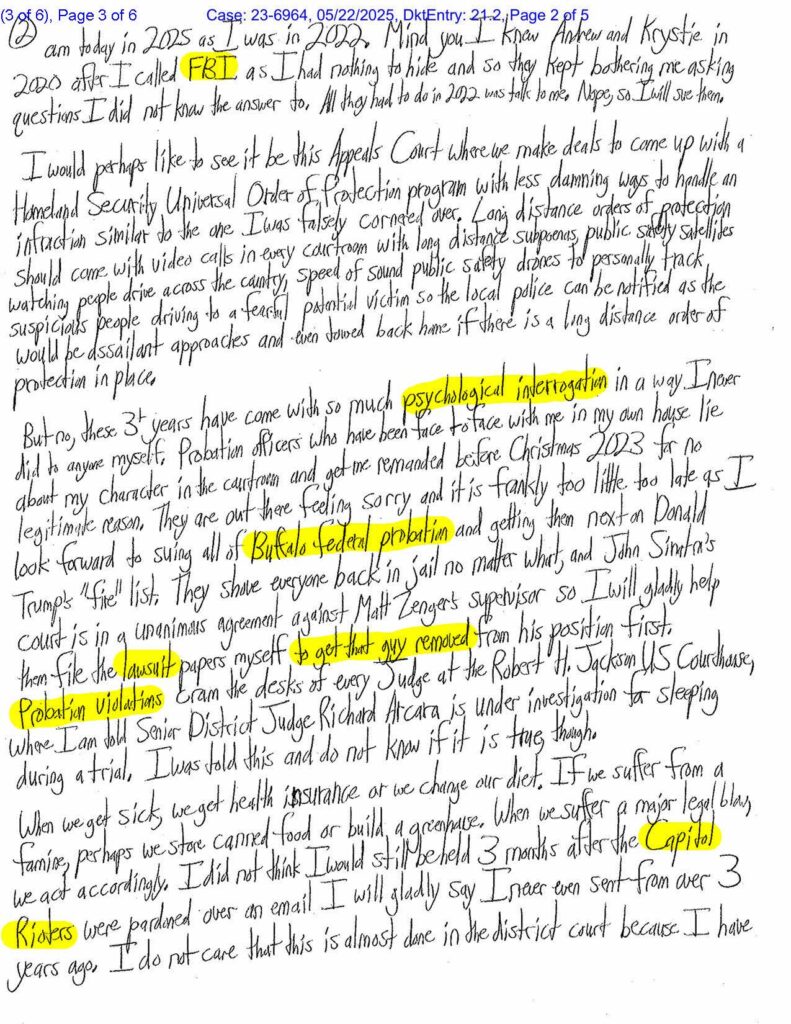 (3 of 6), Page 3 of 6 Case: 23-6964, 05/22/2025, DktEntry: 21.2, Page 2 of 5
② am today in 2025 as I was in 2022. Mind you I knew Andrew and Krystie in
2020 after I called FBI as I had nothing to hide and so they kept bothering me asking
questions I did not know the answer to. All they had to do in 2022 was talk to me. Nope, so I will sue them.
I would perhaps like to see it be this Appeals Court where we make deals to come up with a
Homeland Security Universal Order of Protection program with less damning ways to handle an
infraction similar to the one I was falsely cornered over. Long distance orders of protection
should come with video calls in every courtroom with long distance subpoenas, public safety satellites
watching people drive across the country, speed of sound public safety drones to personally track
suspicious people driving to a fearful potential victim so the local police can be notified as the
would be assailant approaches and even towed back home if there is a long distance order of
protection in place.
But no, these 3+ years have come with so much psychological interrogation in a way I never
did to anyone myself. Probation officers who have been face to face with me in my own house lie
about my character in the courtroom and get me remanded before Christmas 2023 for no
legitimate reason. They are out there feeling sorry and it is frankly too little too late as I
look forward to suing all of Buffalo federal probation and getting them next on Donald
Trump's "fire" list. They shove everyone back in jail no matter what, and John Sinatra's
court is in a unanimous agreement against Matt Zenger's supervisor so I will gladly help
them file the lawsuit papers myself to get that guy removed from his position first.
Probation violations cram the desks of every Judge at the Robert H. Jackson US Courthouse,
where I am told Senior District Judge Richard Arcara is under investigation for sleeping
during a trial. I was told this and do not know if it is true, though.
When we get sick, we get health insurance or we change our diet. If we suffer from a
famine, perhaps we store canned food or build a greenhouse. When we suffer a major legal blow,
we act accordingly. I did not think I would still be held 3 months after the Capitol
Rioters were pardoned over an email I will gladly say I never even sent from over 3
years ago. I do not care that this is almost done in the district court because I have